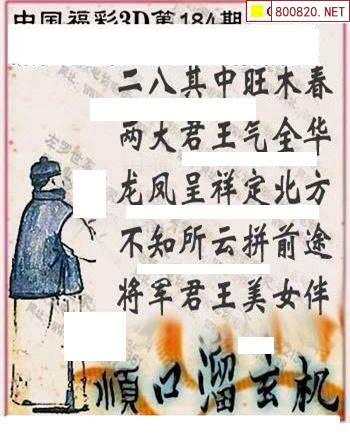 800820.NET
中国福彩3D第184期
二八其中旺木春
两大君王气全华
龙凤呈祥定北方
不知所云拼前途
将军君王美女伴
顺口溜玄机